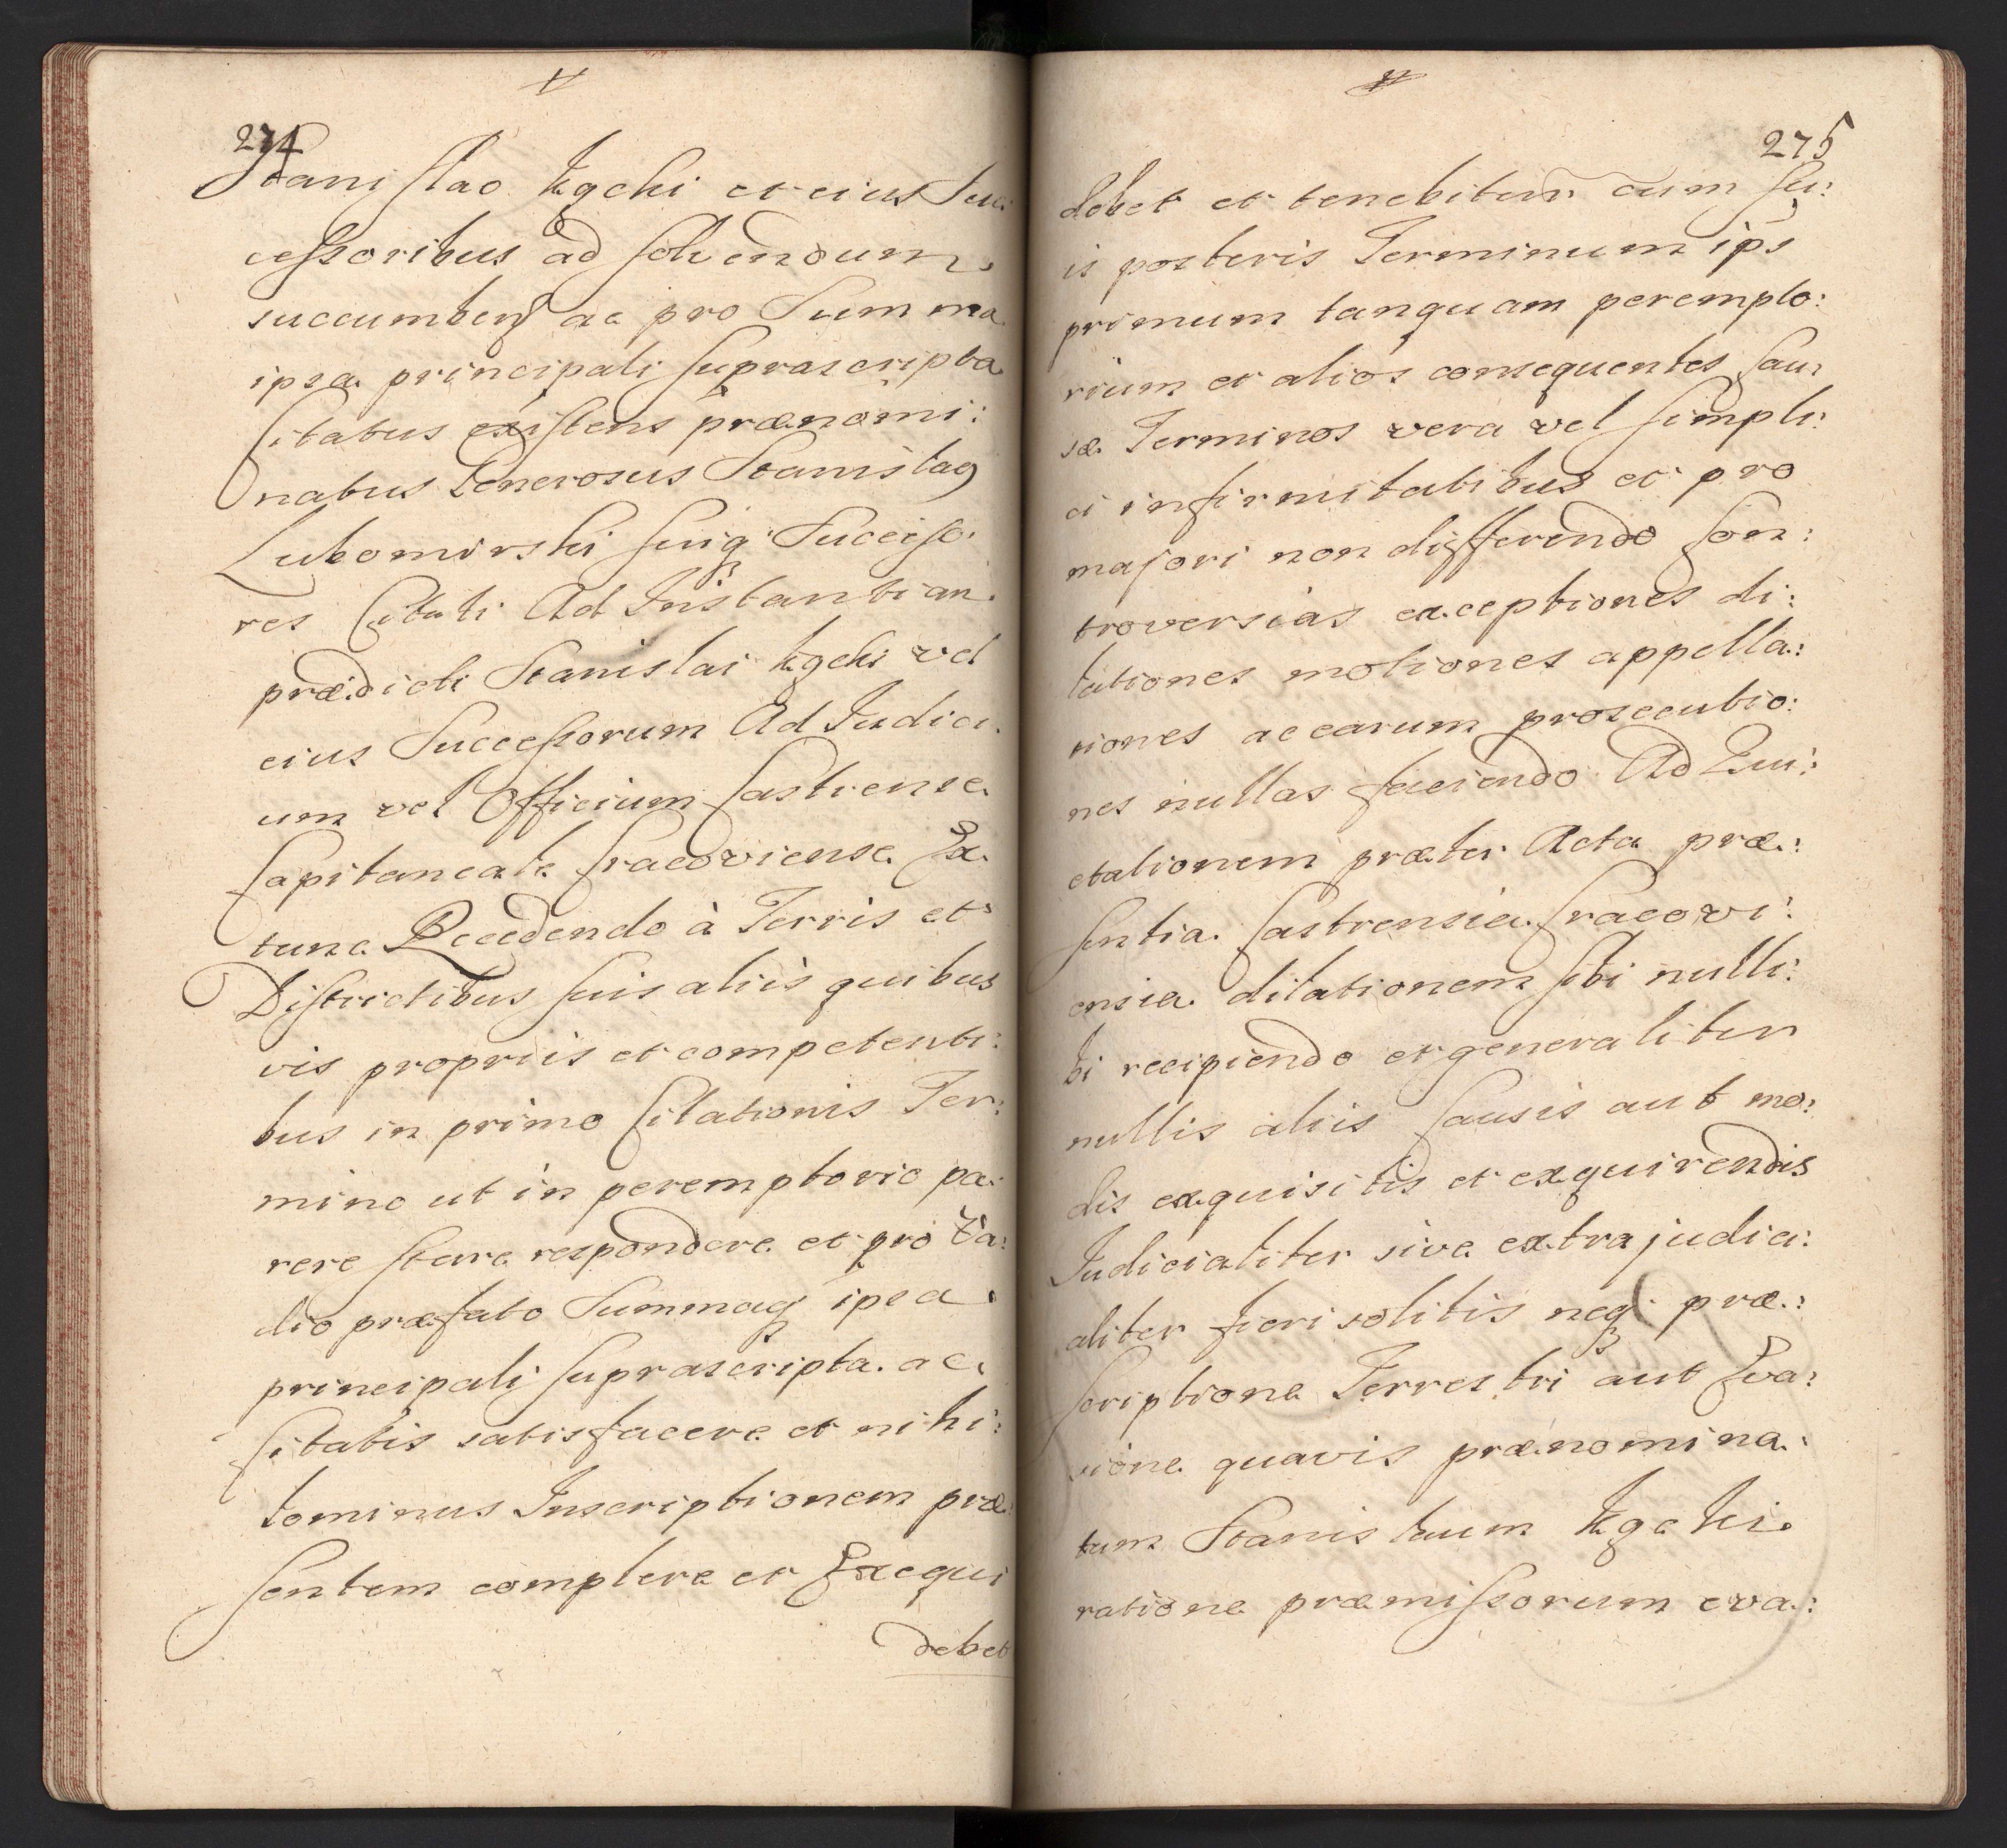 274
Stanislao Kęcki et eius Suc:
cessoribus ad solvendum
succumbens ac pro Summa
ipsa principali suprascripta
Citatus existens prænomi:
natus Generosus Stanislaus
Lubomirski suiq Successo:
res Citati Ad Instantiam
prædicti Stanislai Kęcki vel
eius Successorum Ad Iudici:
um vel Officium Castrense
Capitaneale Cracoviense Ex
tunc Recedendo à Terris et
Districtibus suis aliis quibus
vis propriis et competenti:
bus in primo Citationis Ter:
mino ut in peremptorio pa:
rere stare respondere et pro Va:
dio præfato Summaq ipsa
principali suprascripta ac
Citatis satisfacere et nihi:
lominus Inscriptionem præ:
sentem complere et Exequi
debet
275
debet et tenebitur cum su:
is posteris Terminum ips
primum tanquam perempto:
rium et alios consequentes Cau:
sæ Terminos vera vel simpli:
ci infirmitatibus et pro
majori non differendo Con:
troversias exceptiones di:
lationes motiones appella:
tiones accarum prosecutio:
nes nullas faciendo Ad Qui:
etationem præter Acta præ:
sentia Castrensia Cracovi:
ensia dilationem sibi nulli:
bi recipiendo et generaliter
nullis aliis Causis aut mo:
dis exquisitis et exquirendis
Iudicialiter sive extrajudici:
aliter fieri solitis neq præ:
scriptione Terrestri aut Eva:
sione quavis prænomina:
tum Stanislaum Kęcki
ratione præmissorum eva: